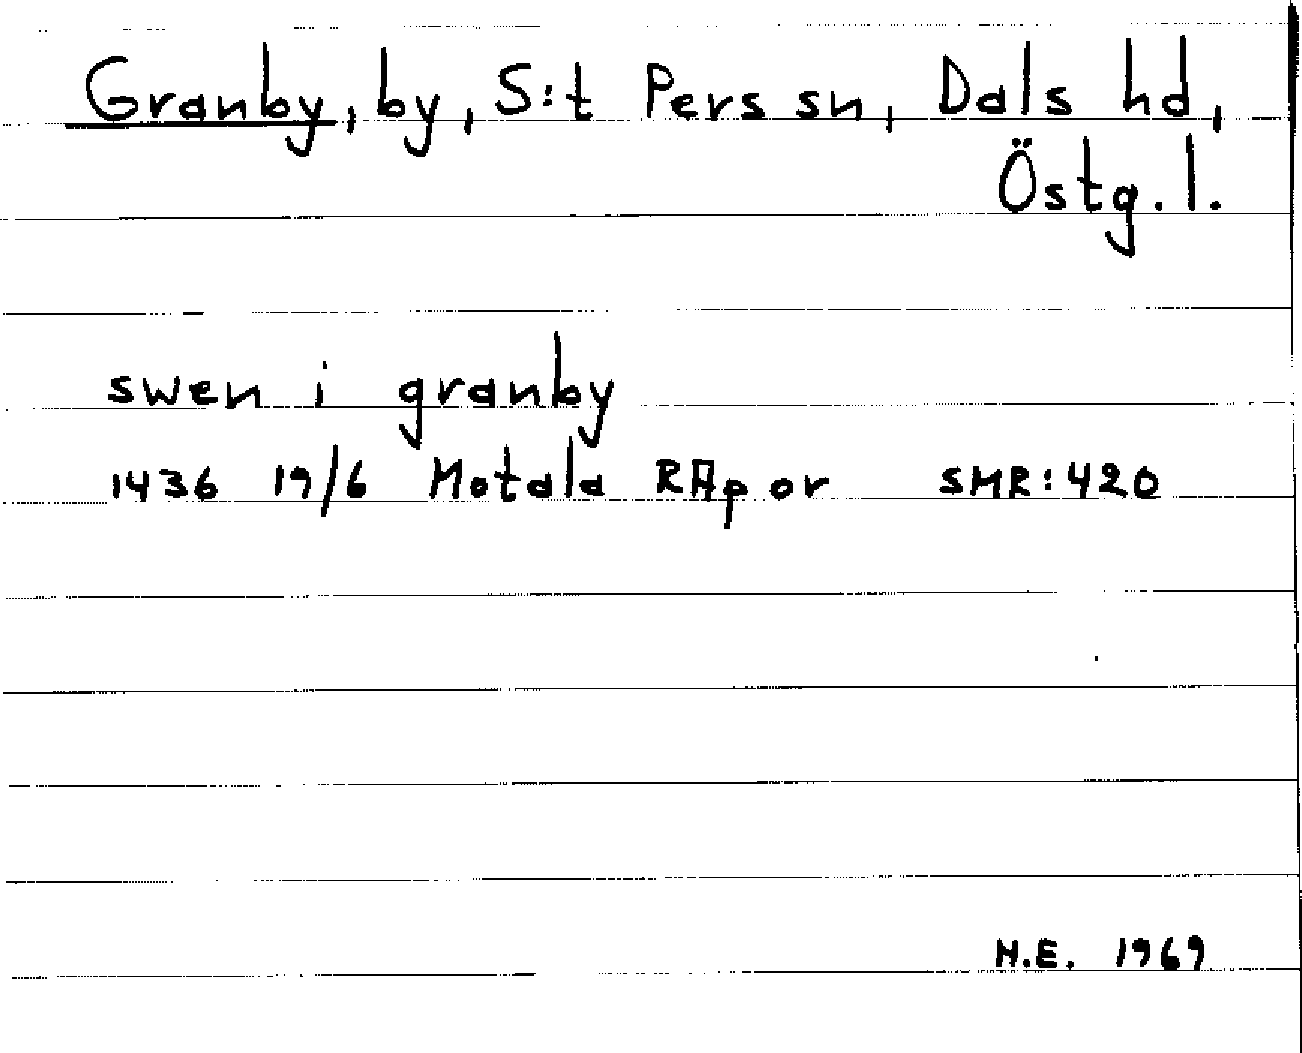 Granby, by, S:t Pers sn, Dals hd,
Östg. l.
swen i granby
1436 19/6 Motala RAp or SMR:420
H.E. 1969